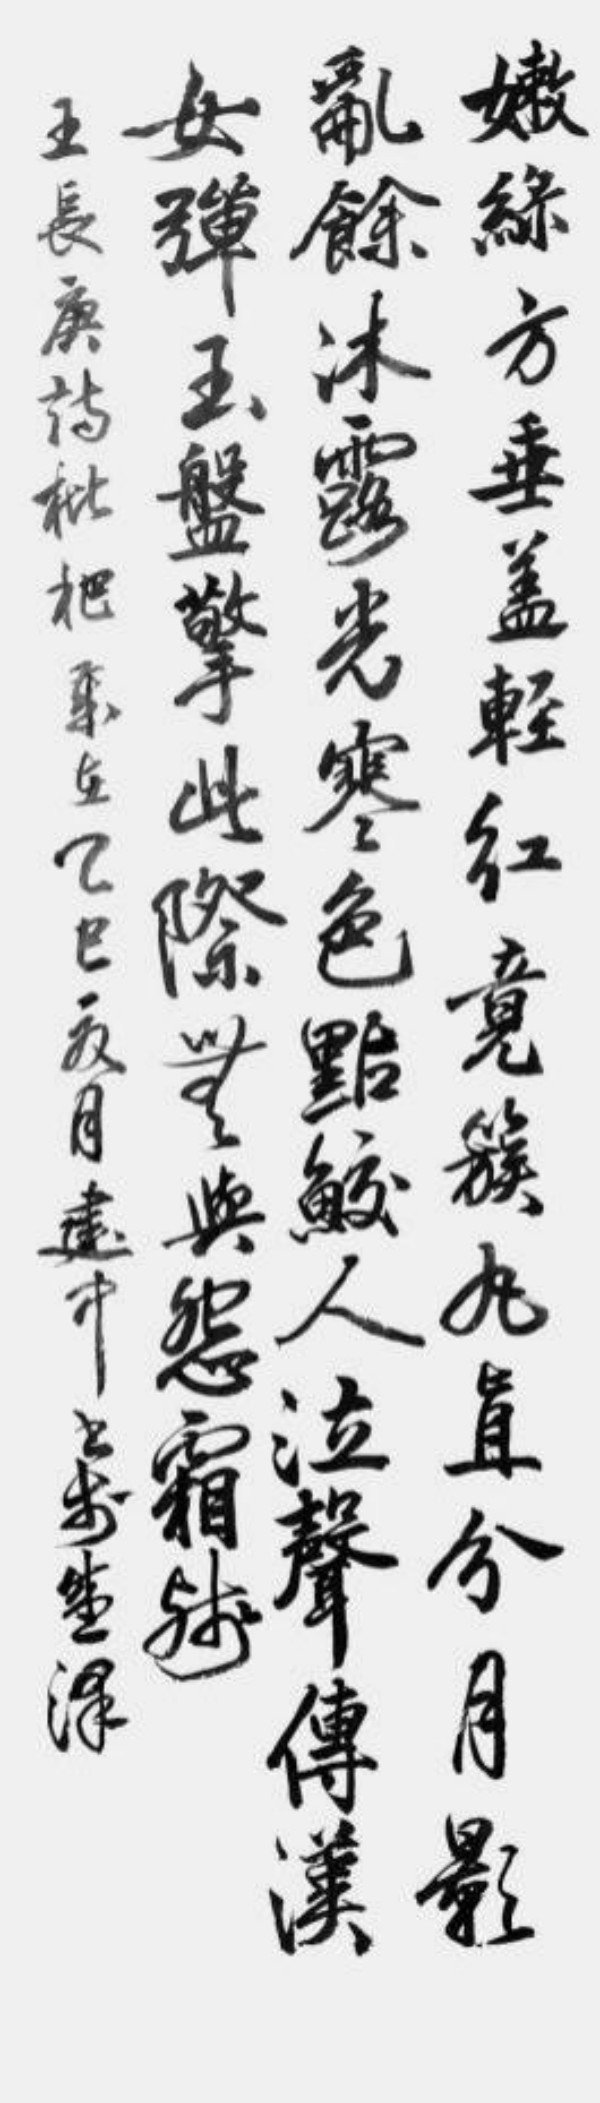 嫩綠方垂蓋輕紅竟簇丸直分月影
亂餘沬露光寒色點鮫人泣聲傳漢
女彈玉盤擎此際無與怨霜殘
王長庚詩枇杷乙巳夏月建中書於笙澤